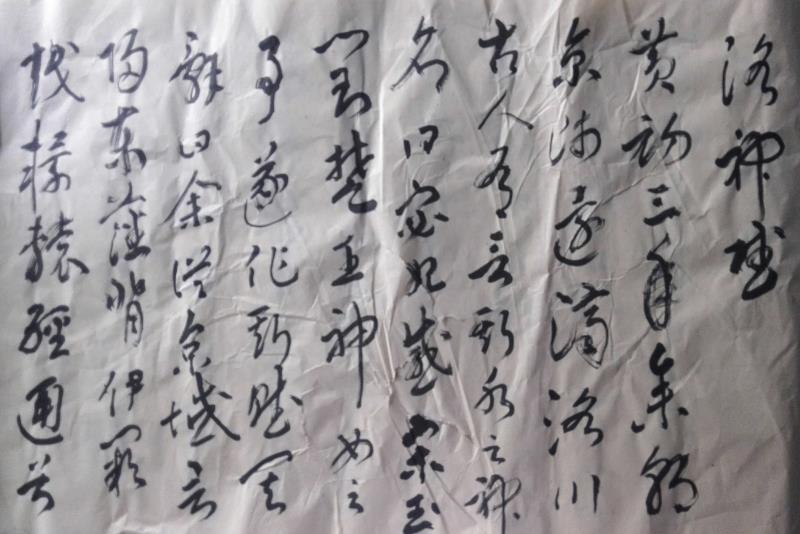 洛神赋
黄初三年余朝
京师还济洛川
古人有言斯水之神
名曰宓妃感宋玉
对楚王神女之
事遂作斯赋其
辞曰余从京域言
归东藩背伊阙
越轘辕经通谷